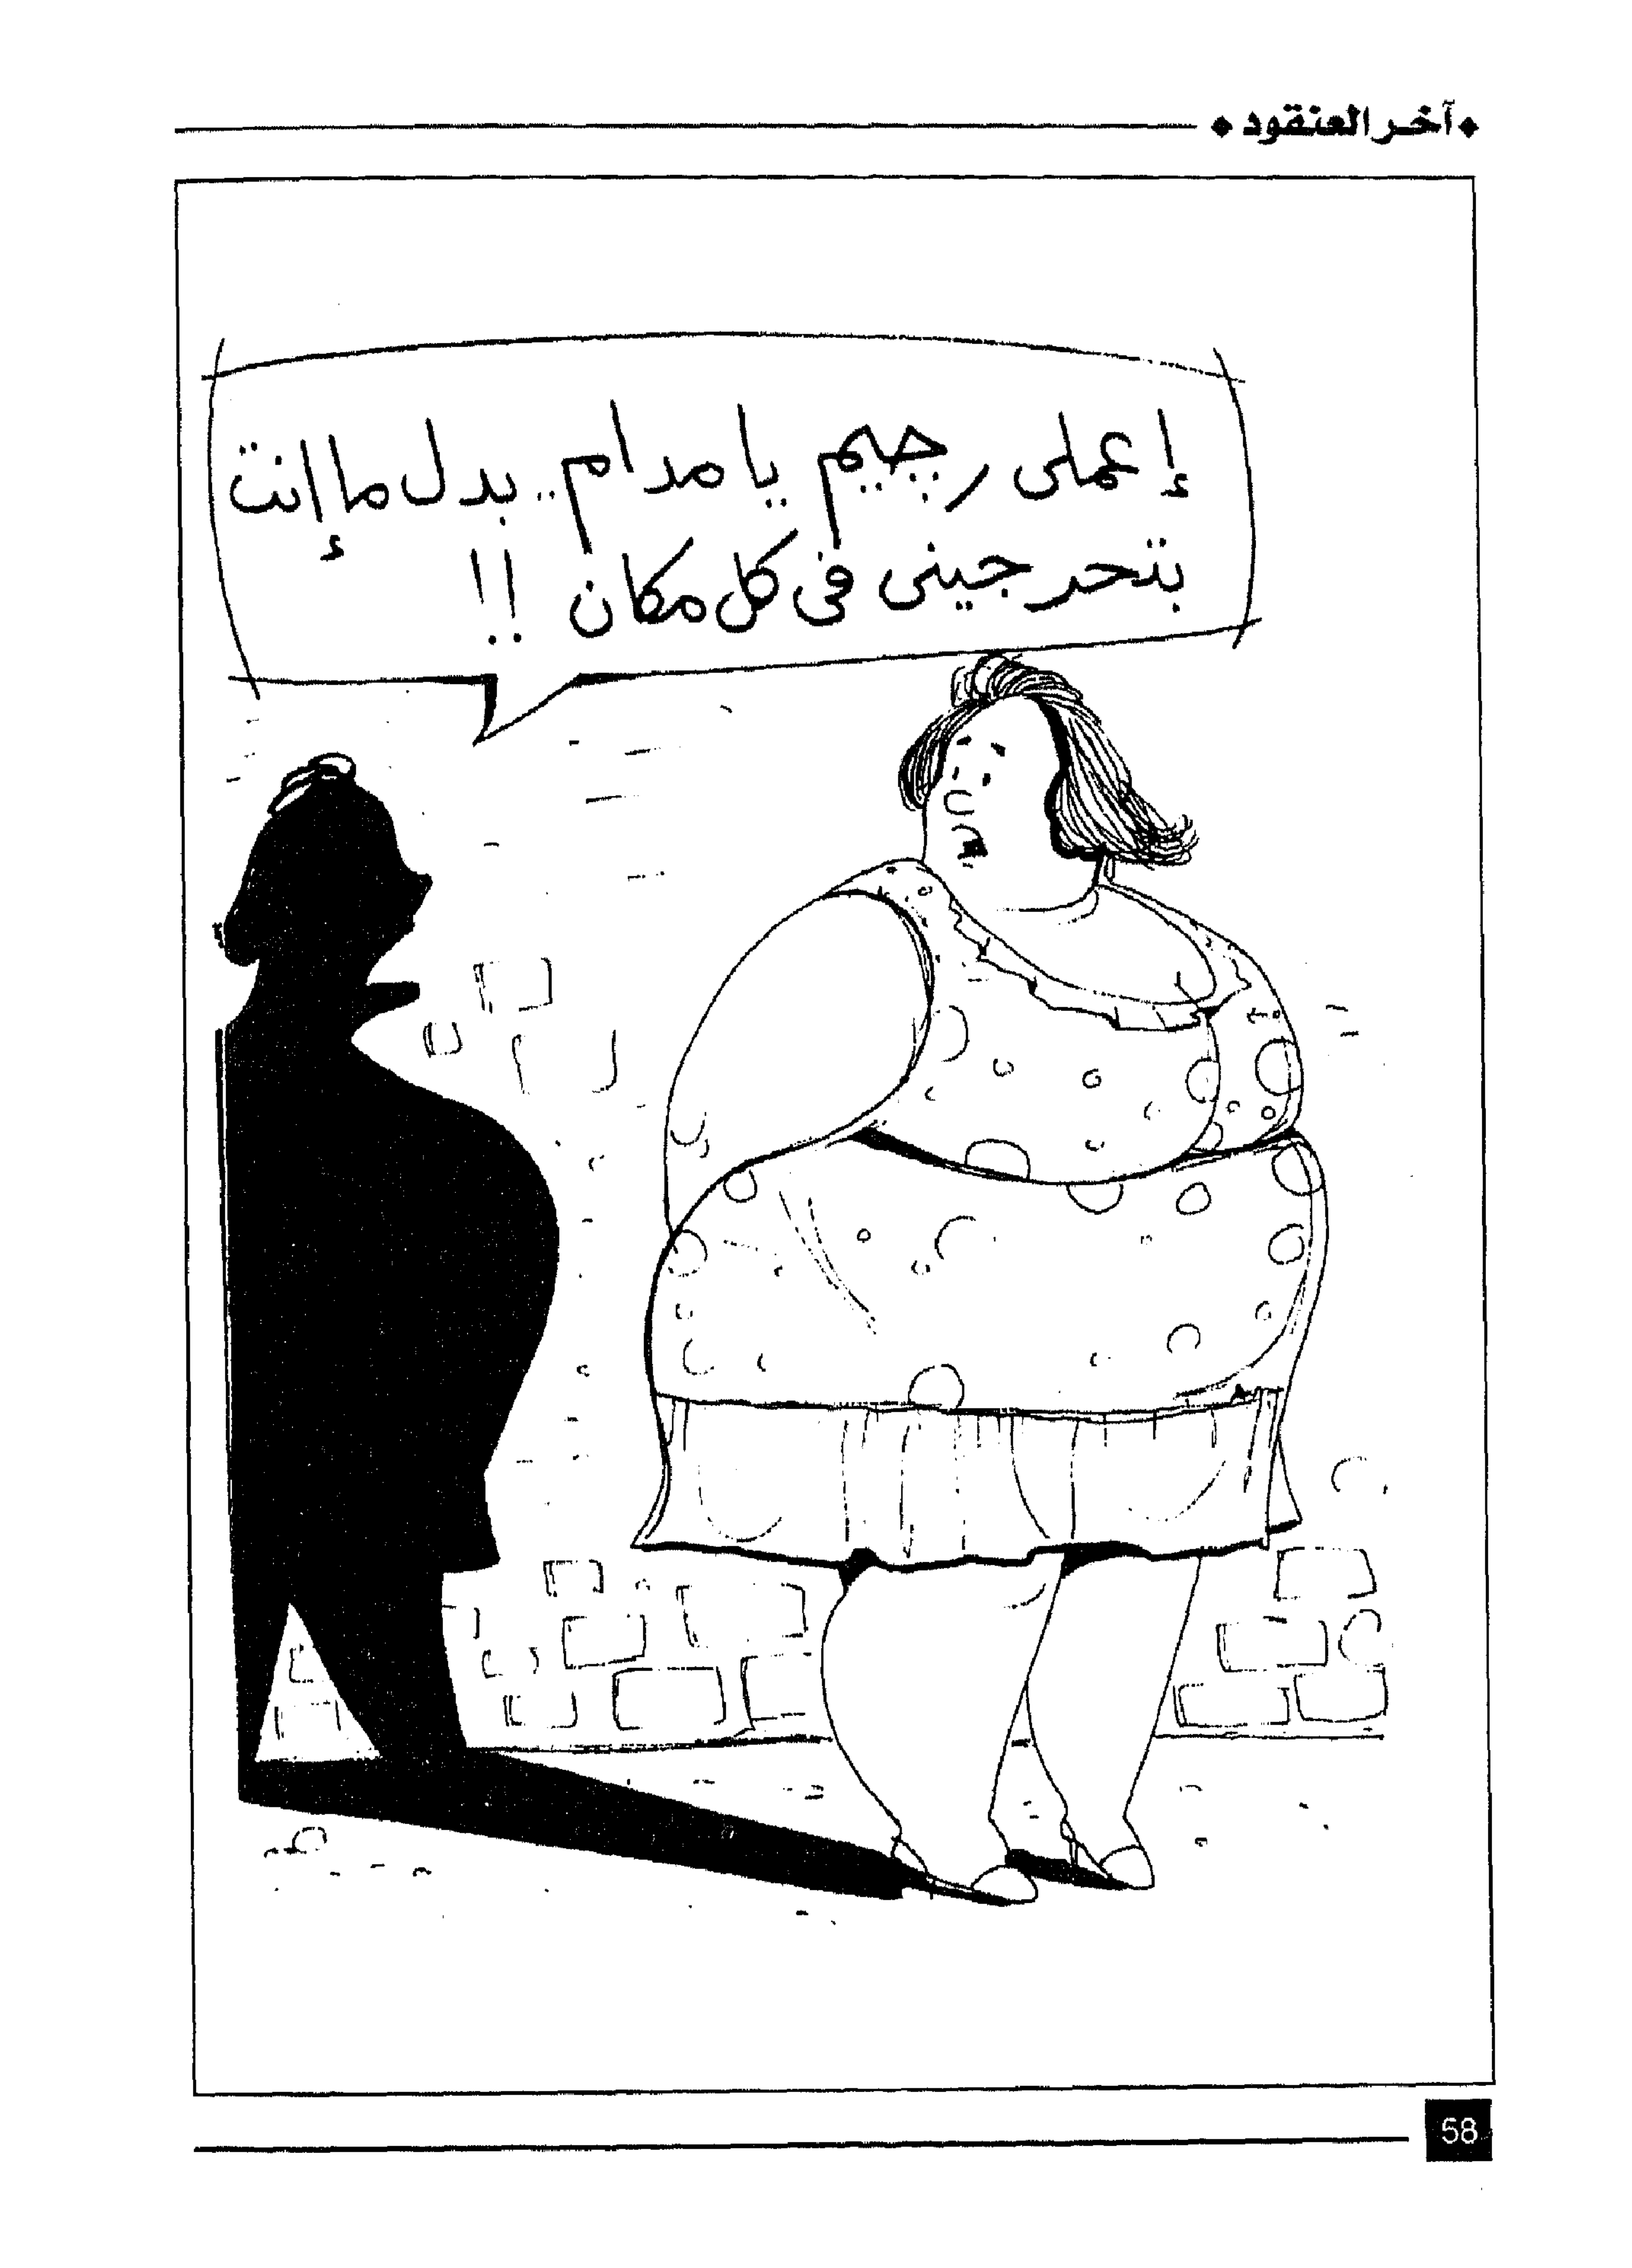 ◆ آخر العنقود ◆
إعملى رجيم يا مدام .. بدل ما إنت
بتحرجينى فى كل مكان !!
58